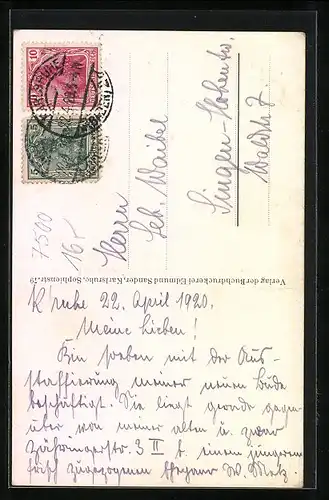 Herrn
Seb. Waibel
Singen-Hohentw.
Waldstr. 7.
7500
16,-
Verlag der Buchdruckerei Edmund Sander, Karlsruhe, Sophienstr.
K'ruhe 22. April 1920.
Meine Lieben!
Bin soeben mit der Aus-
staffierung meiner neuen Bude
beschäftigt. Sie liegt gerade gegen-
über von meiner alten u. zwar
Zähringerstr. 3 II b. einem jüngeren
frisch zugezogenen W. Metz.
10
5
KARLSRUHE